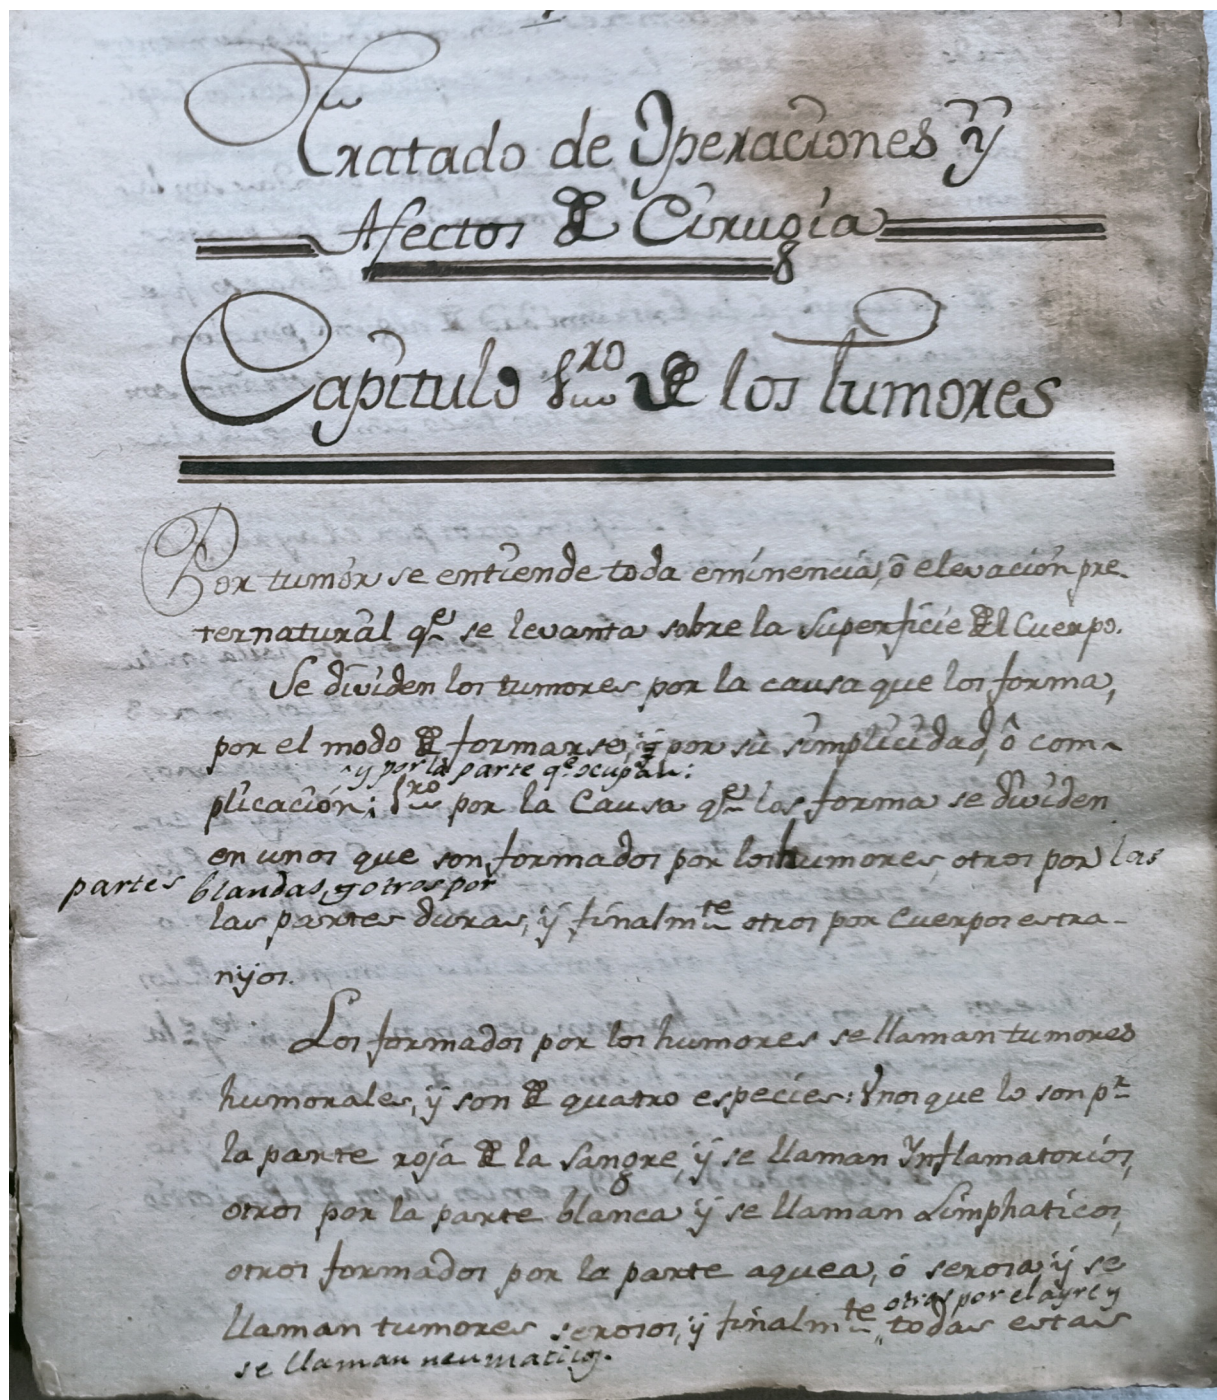 Tratado de Operaciones y
Afectos de Cirugia
Capitulo 1ro de los tumores
Por tumor se entiende toda eminencia, ô elevación pre-
ternatural qe se levanta sobre la superficie del Cuerpo.
Se dividen los tumores por la causa que los forma,
por el modo de formarse, ÿ por su simplicidad, ô com-
y por la parte qe ocupan:
plicación; 1ro por la Causa qe los forma se dividen
en unos que son formados por los humores, otros por las
partes blandas, y otros por
las partes duras, ÿ finalmte otros por Cuerpos estra-
nijos.
Los formados por los humores se llaman tumores
humorales, ÿ son de quatro especies: Ynos que lo son pr
la parte roja de la sangre, ÿ se llaman Ynflamatorios,
otros por la parte blanca ÿ se llaman Limphaticos,
otros formados por la parte aquea, ó serosa ÿ se
otros por el ayre y
llaman tumores serosos, ÿ finalmte todas estas
se llaman neumaticos.